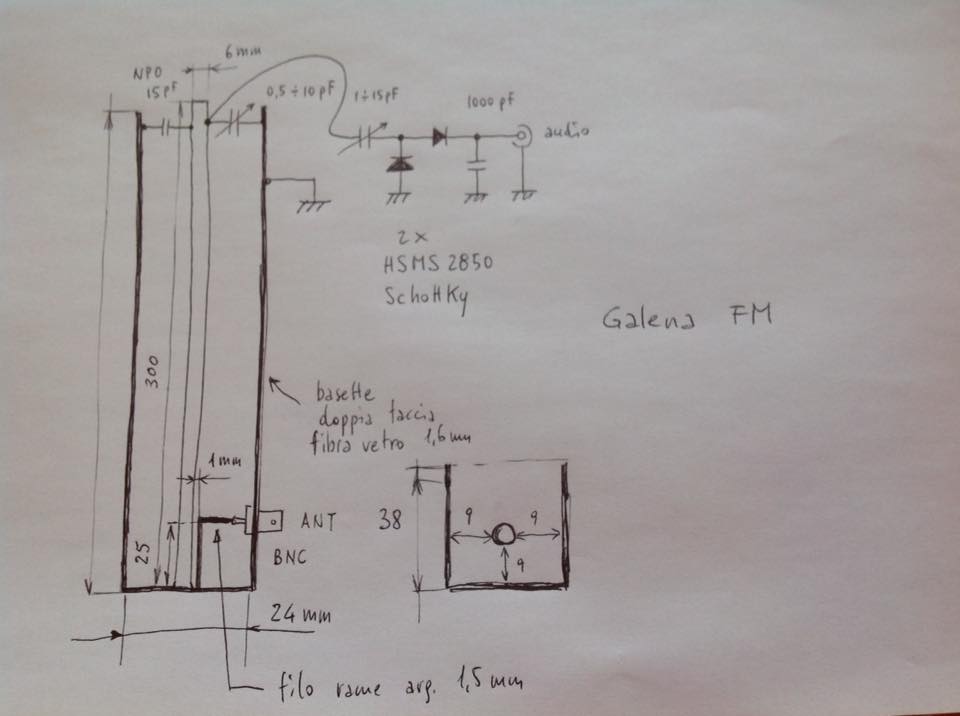 6mm
NPO
15pF
0,5÷10pF
1÷15pF
1000pF
audio
2x
HSMS 2850
Schottky
Galena FM
300
basette
doppia faccia
fibra vetro 1,6mm
1mm
ANT
BNC
25
38
9
9
9
24mm
filo rame arg. 1,5mm